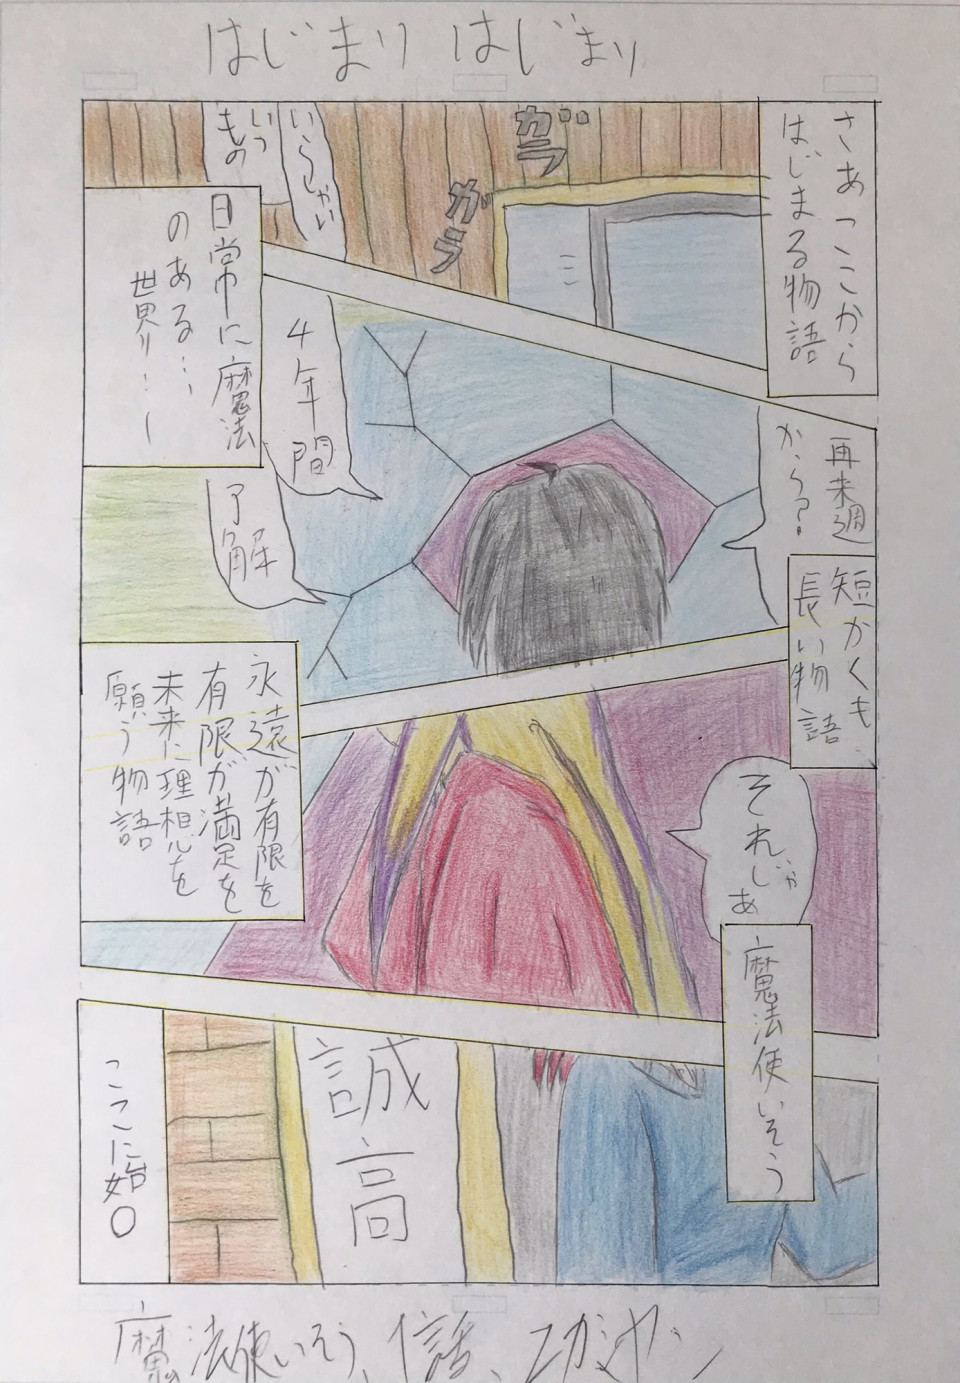 はじまり はじまり
さあっここから
はじまる物語
ガラ
ガラ
いらしゃい
いつ
もの
日常に魔法
のある…
世界!!…ー
再来週
から?
4年間
了解
短かくも
長い物語
永遠が有限を
有限が満足を
未来に理想を
願う物語
それじゃあ
魔法使いそう
誠高
ここに始〇
魔法使いそう、